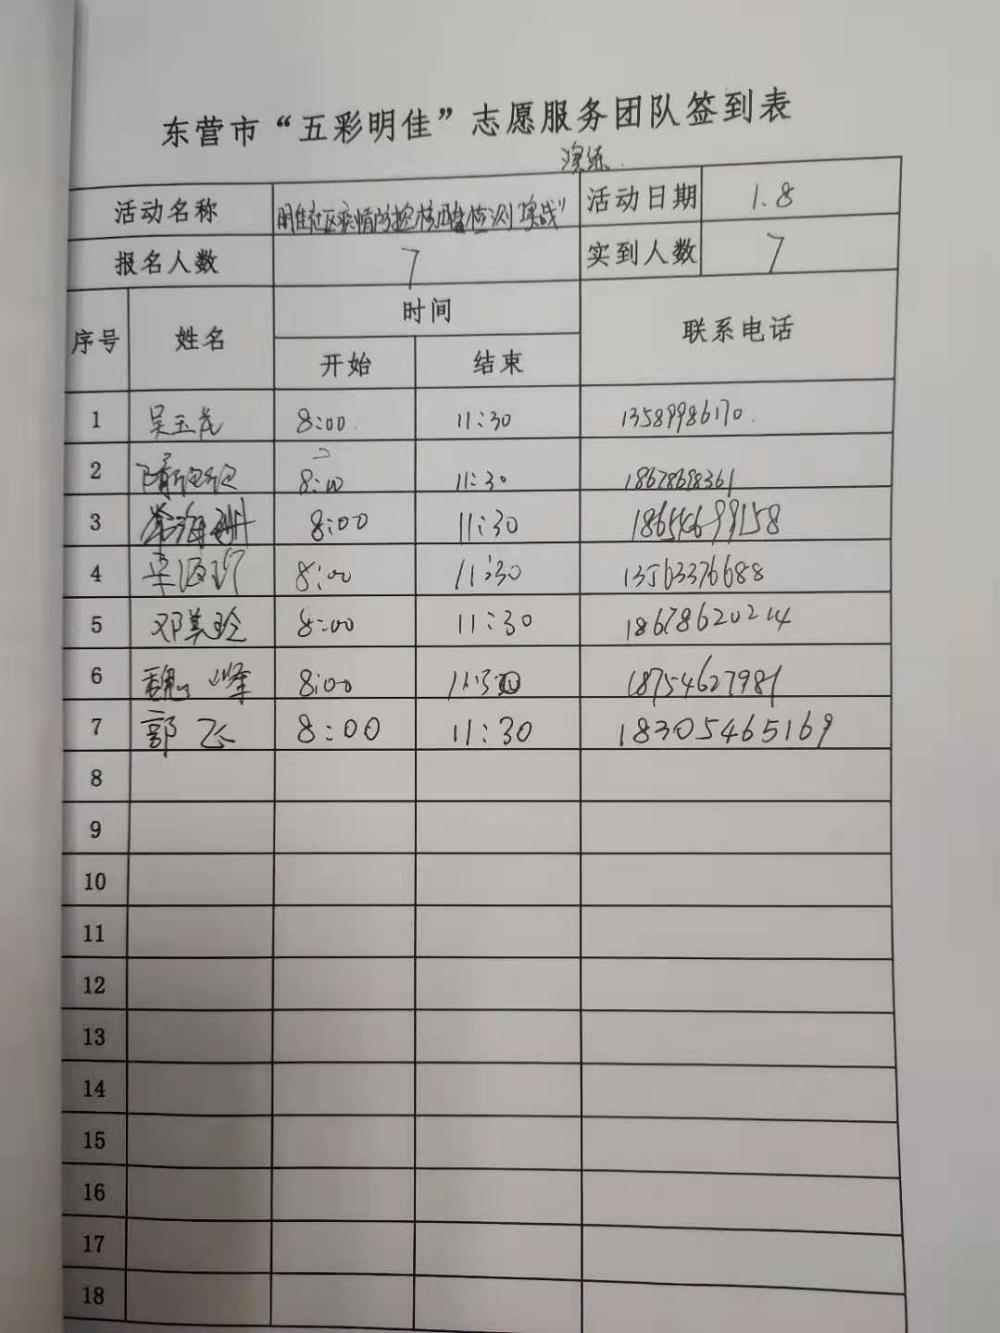 东营市“五彩明佳”志愿服务团队签到表
演练.
活动名称 明佳社区疫情防控核酸检测“实战” 活动日期 1.8
报名人数 7 实到人数 7
序号 姓名 时间 联系电话
开始 结束
1 吴玉龙 8:00 11:30 13589986170.
2 隋 8:00 11:30 18678698361
3 常海洲 8:00 11:30 18654699158
4 8:00 11:30 13563376688
5 邓美玲 8:00 11:30 18678620214
6 魏峰 8:00 11:30 18754627981
7 郭飞 8:00 11:30 18305465169
8
9
10
11
12
13
14
15
16
17
18